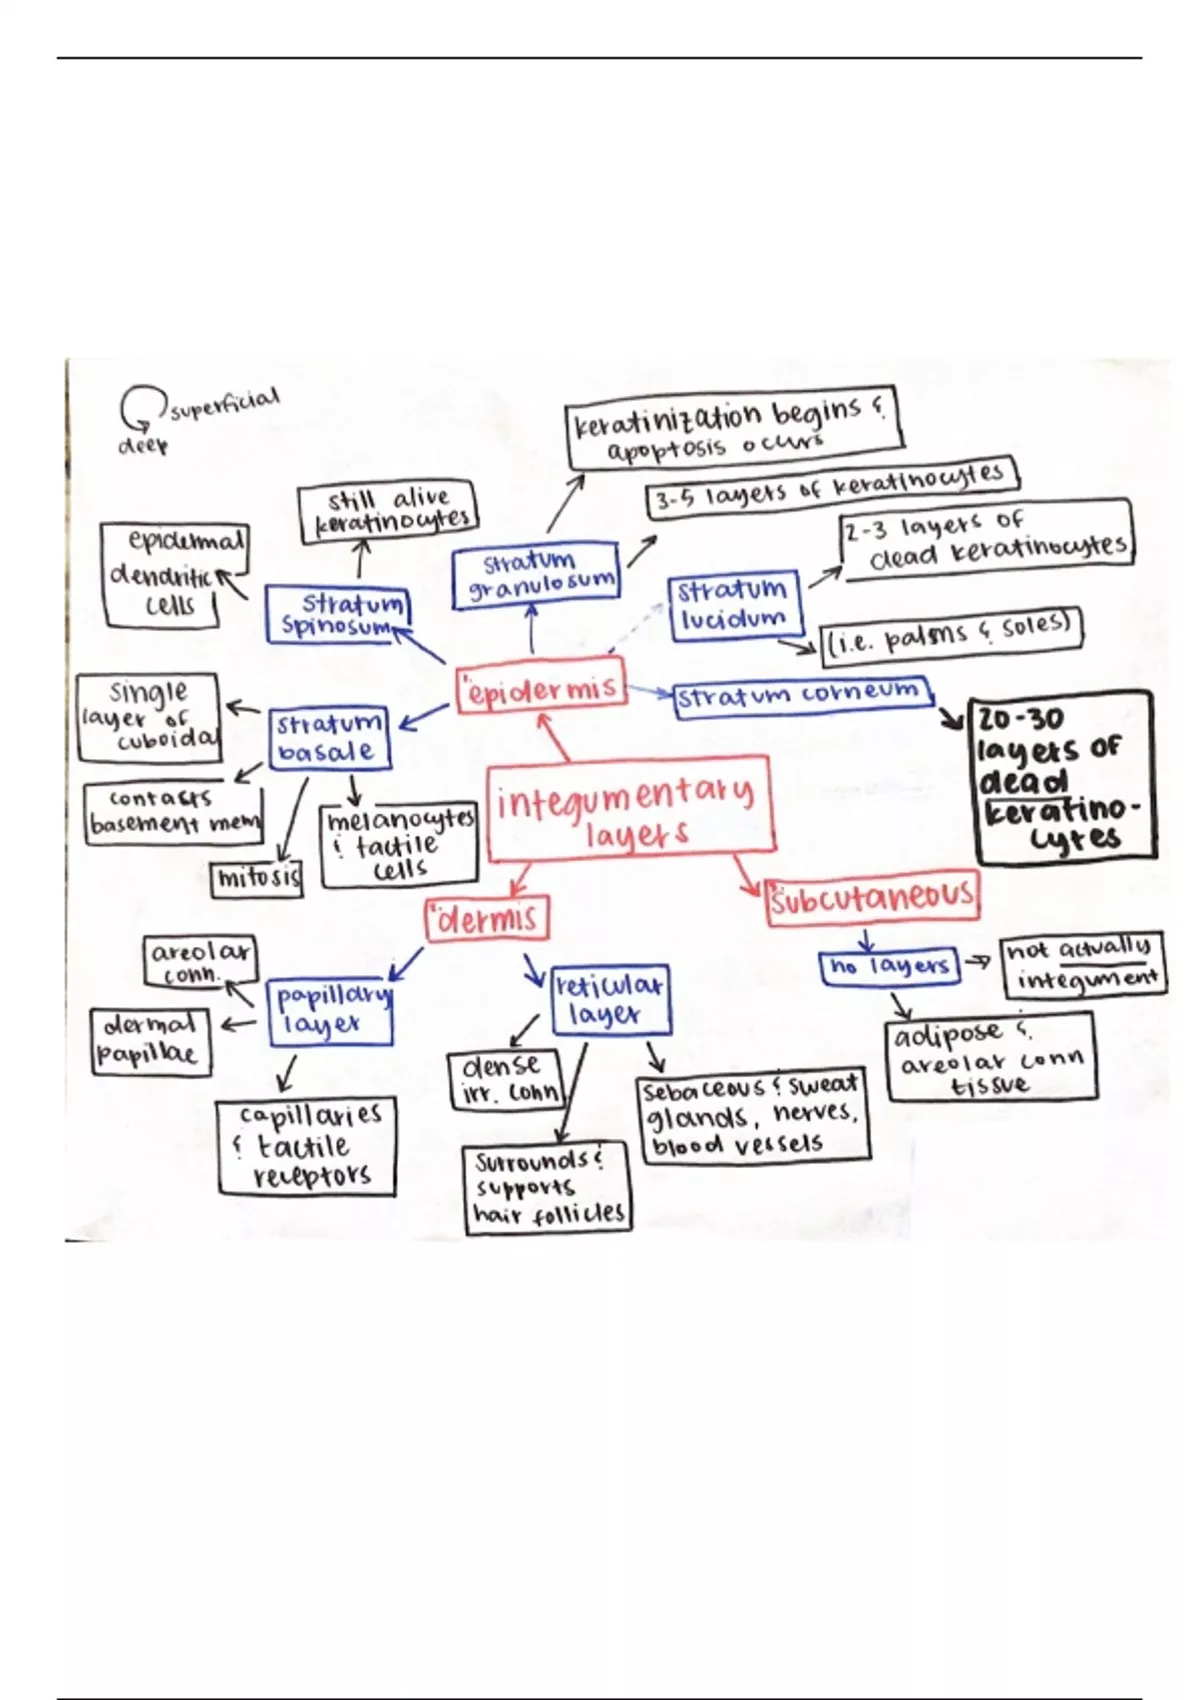 superficial
deep
keratinization begins &
apoptosis occurs
3-5 layers of keratinocytes
still alive
keratinocytes
2-3 layers of
dead keratinocytes
epidermal
dendritic
cells
stratum
granulosum
stratum
spinosum
stratum
lucidum
(i.e. palms & soles)
1. epidermis
stratum corneum
20-30
layers of
dead
keratino-
cytes
single
layer of
cuboidal
stratum
basale
contacts
basement mem
mitosis
melanocytes
& tactile
cells
integumentary
layers
2. dermis
3. subcutaneous
no layers
not actually
integument
adipose &
areolar conn
tissue
areolar
conn.
papillary
layer
dermal
papillae
capillaries
& tactile
receptors
reticular
layer
dense
irr. conn
surrounds &
supports
hair follicles
sebaceous & sweat
glands, nerves,
blood vessels